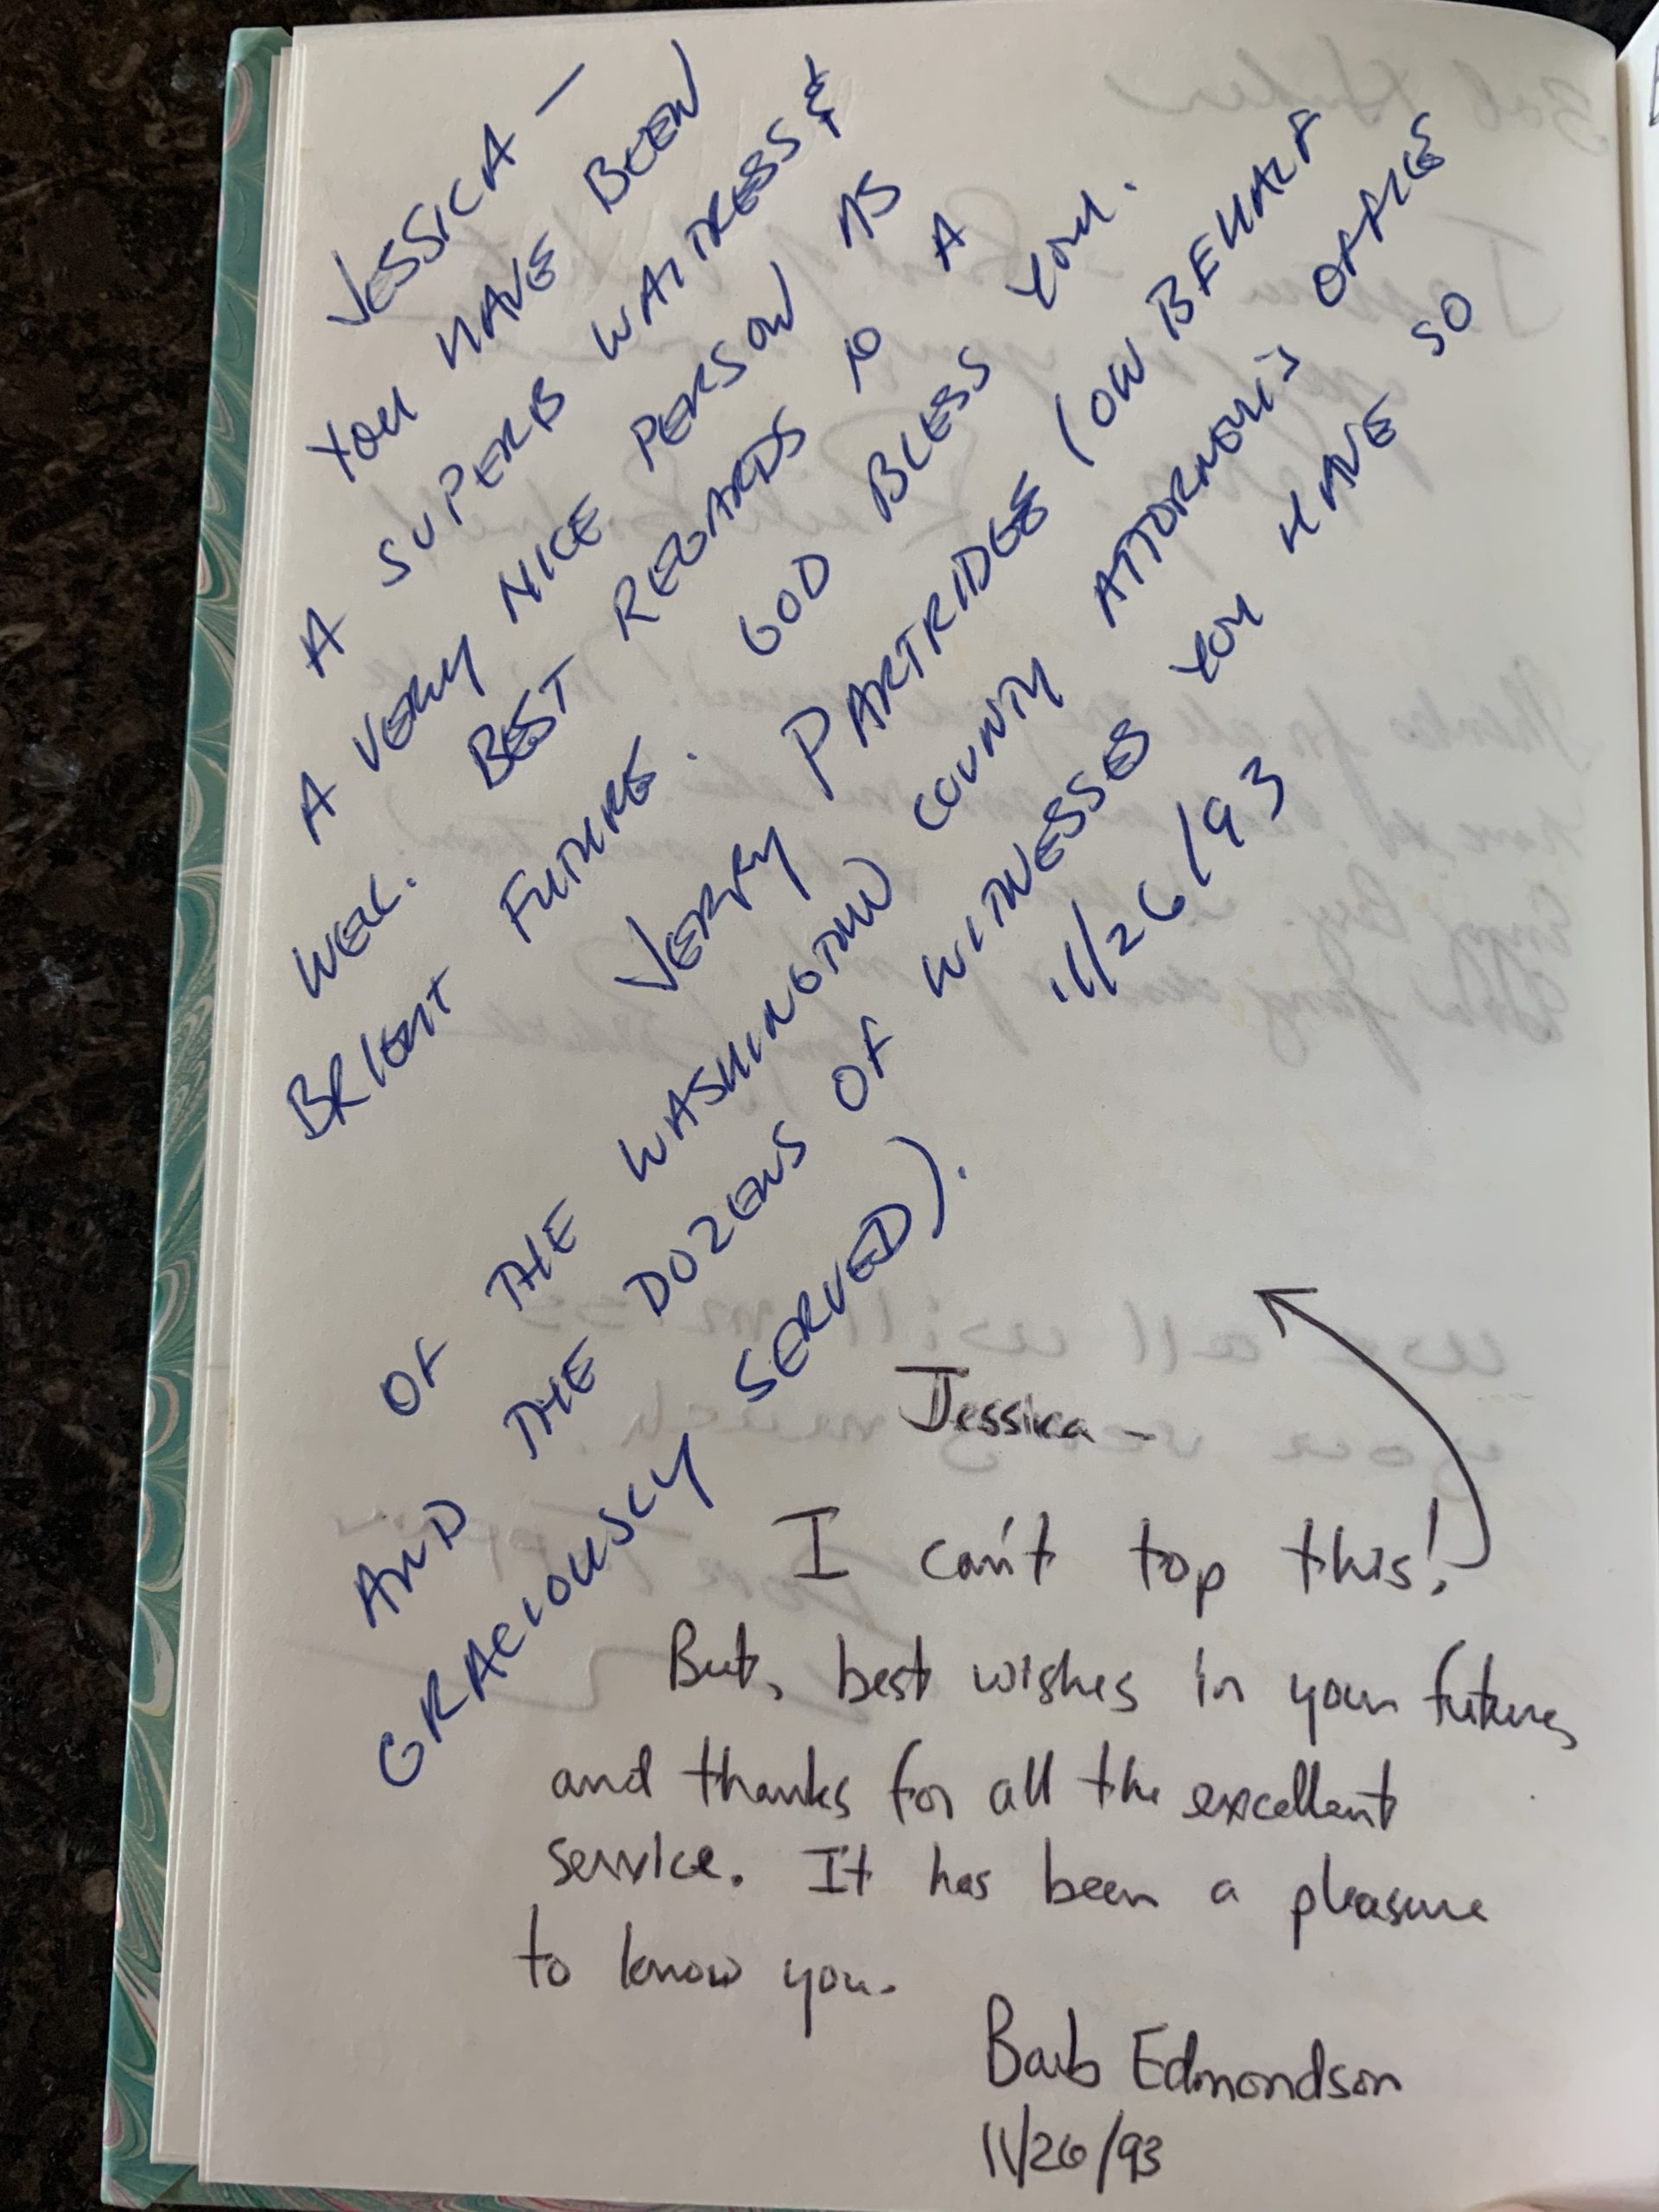 JESSICA —
YOU HAVE BEEN
A SUPERB WAITRESS &
A VERY NICE PERSON AS
WELL. BEST REGARDS TO A
BRIGHT FUTURE. GOD BLESS YOU.
JERRY PARTRIDGE (ON BEHALF
OF THE WASHINGTON COUNTY ATTORNEY'S OFFICE
AND THE DOZENS OF WITNESSES YOU HAVE SO
GRACIOUSLY SERVED).
11/26/93
Jessica —
I can't top this!
But, best wishes in your future,
and thanks for all the excellent
service. It has been a pleasure
to know you.
Barb Edmondson
11/26/93